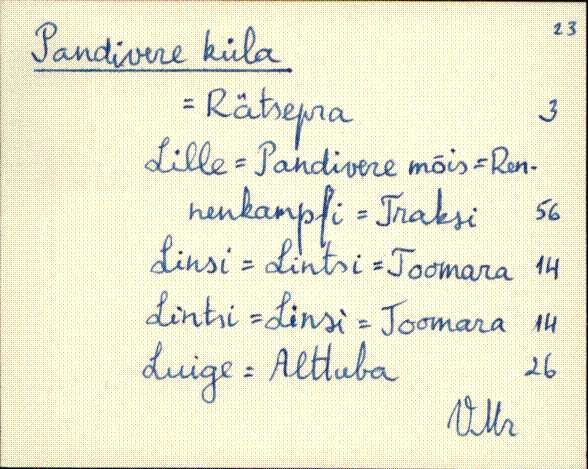 23
Pandivere küla
= Rätsepra 3
Lille = Pandivere mõis = Ren-
nenkampfi = Traksi 56
Linsi = Lintsi = Toomara 14
Lintsi = Linsi = Toomara 14
Luige = Alttuba 26
VMr